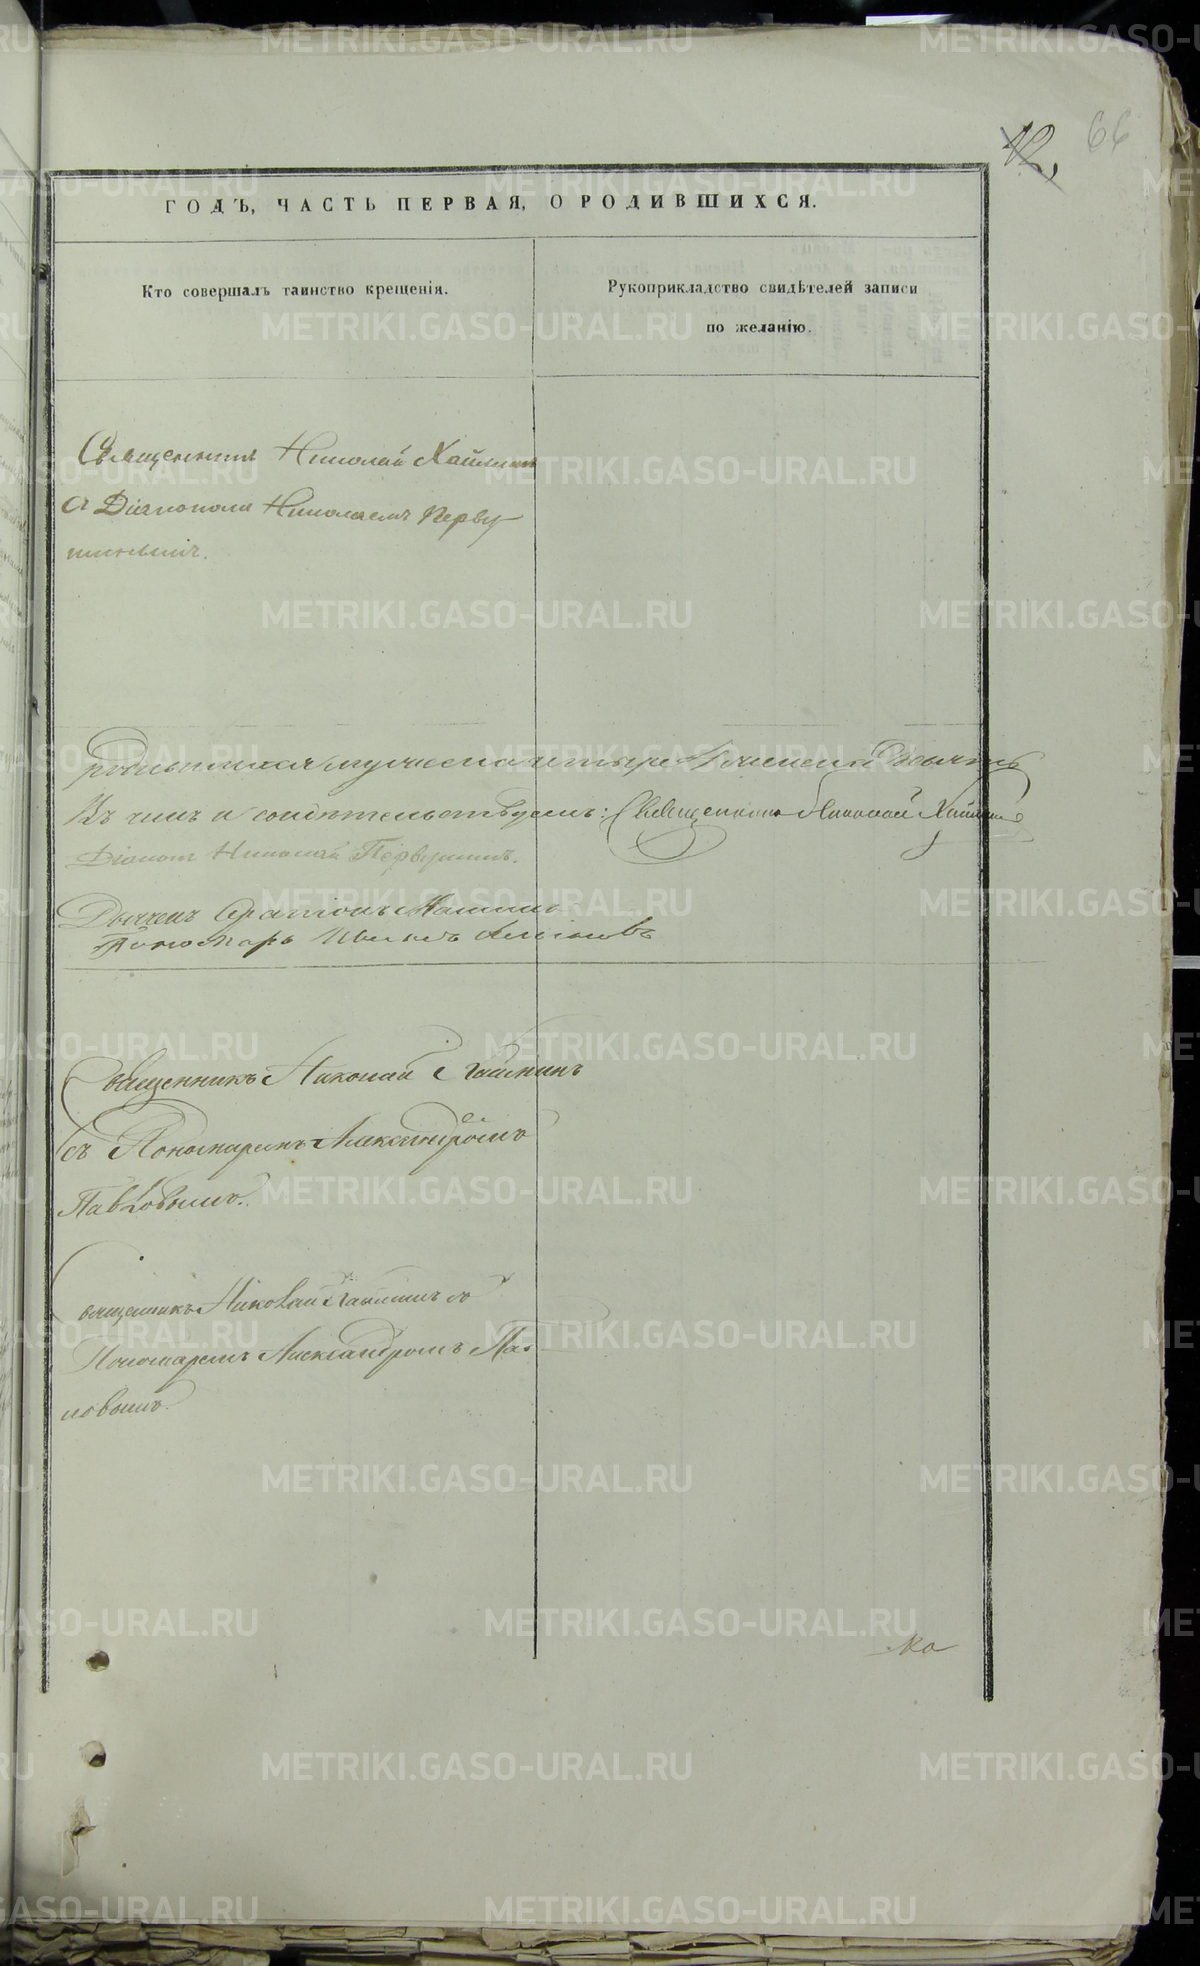 12.
66
ГОДЪ, ЧАСТЬ ПЕРВАЯ, О РОДИВШИХСЯ.
Кто совершалъ таинство крещенія.
Рукоприкладство свидѣтелей записи
по желанію.
Священникъ Николай
съ Діакономъ Николаемъ Перву
шинымъ.
родившихся мужеска четыре
Въ чемъ и свидѣтельствуемъ: Священникъ Николай
Діаконъ Николай Первушинъ.
Дьячекъ
Пономарь
Священникъ Николай
съ Пономаремъ Александромъ
Павловымъ.
Священникъ Николай съ
Пономаремъ Александромъ Пав
ловымъ.
METRIKI.GASO-URAL.RU